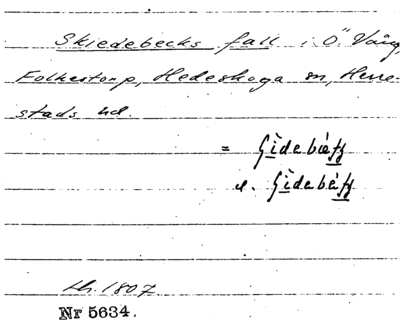 Skiedebecks fall i Ö. Vång,
Folkestorp, Hedeskoga sn, Herre-
stads hd.
= Gìdebæ̀
d. Gìdebæ̀
Lh. 1807
Nr 5634.